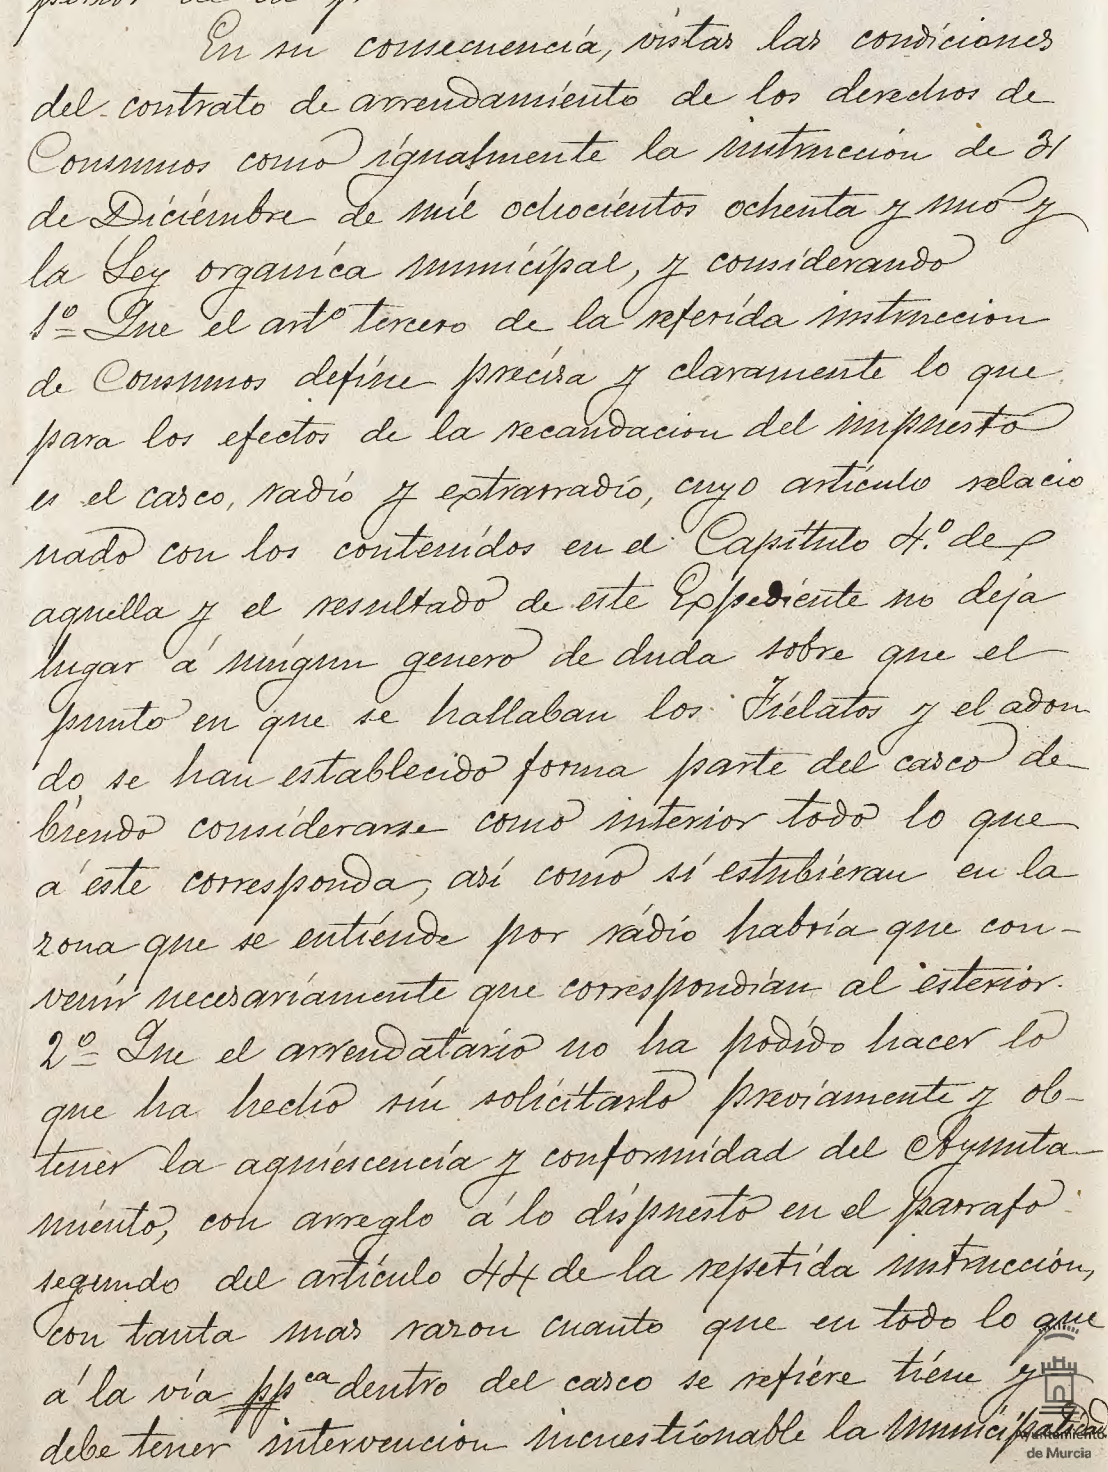 En su consecuencia, vistas las condiciones
del contrato de arrendamiento de los derechos de
Consumos como igualmente la instruccion de 31
de Diciembre de mil ochocientos ochenta y uno y
la Ley organica municipal, y considerando
1º Que el artº tercero de la referida instruccion
de Consumos define precisa y claramente lo que
para los efectos de la recaudacion del impuesto
es el casco, radio y extrarradio, cuyo artículo relacio
nado con los contenidos en el Capítulo 4.º de
aquella y el resultado de este Expediente no deja
lugar á ningun genero de duda sobre que el
punto en que se hallaban los Fielatos y el adon
do se han establecido forma parte del casco de
biendo considerarse como interior todo lo que
á este corresponda, así como si estubieran en la
zona que se entiende por rádio habría que con-
venir necesariamente que correspondian al esterior.
2º Que el arrendatario no ha podido hacer lo
que ha hecho sin solicitarlo previamente y ob-
tener la aquiescencia y conformidad del Ayunta
miento, con arreglo á lo dispuesto en el parrafo
segundo del artículo 44 de la repetida instruccion,
con tanta mas razon cuanto que en todo lo que
á la vía ppca dentro del casco se refiere tiene y
debe tener intervencion incuestionable la municipalidad
Ayuntamiento
de Murcia